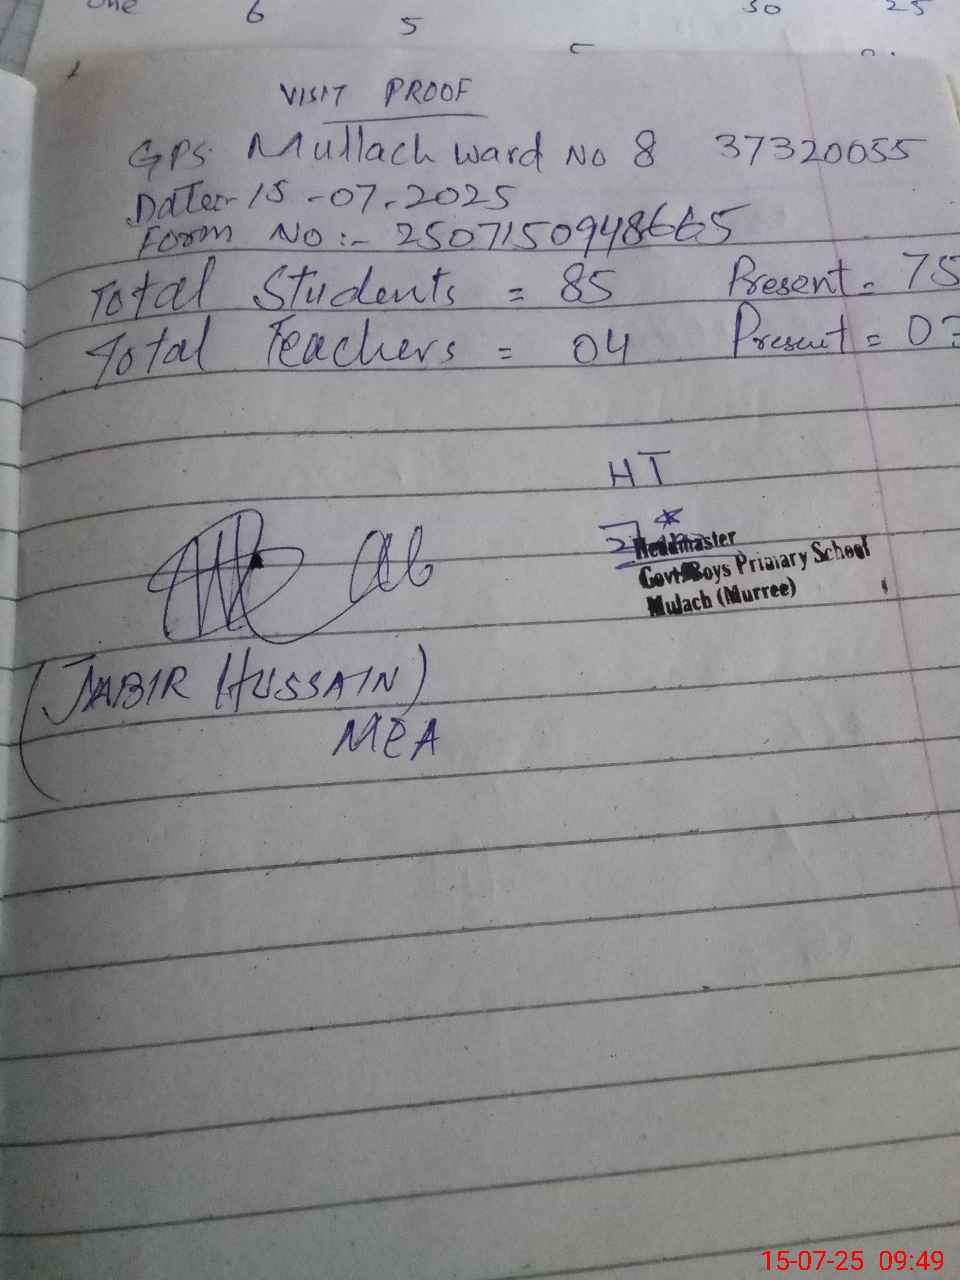 one 6 5 30 25
VISIT PROOF
GPS Mullach ward No 8 37320055
Date:- 15-07.2025
Form No:- 2507150948665
Total Students = 85 Present = 75
Total Teachers = 04 Present = 03
HT
Headmaster
Govt Boys Primary School
Mulach (Murree)
(JABIR HUSSAIN)
MEA
15-07-25 09:49